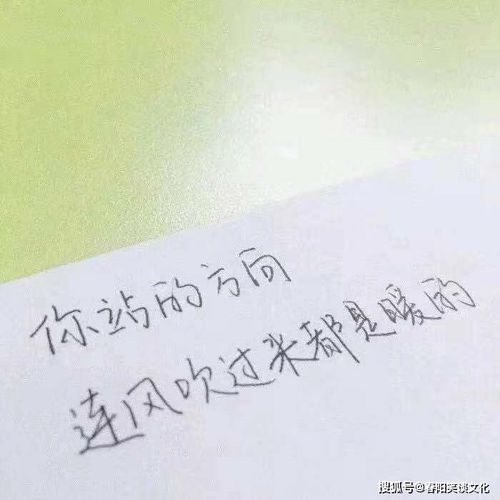 你站的方向
连风吹过来都是暖的
搜狐号@春阳笑谈文化